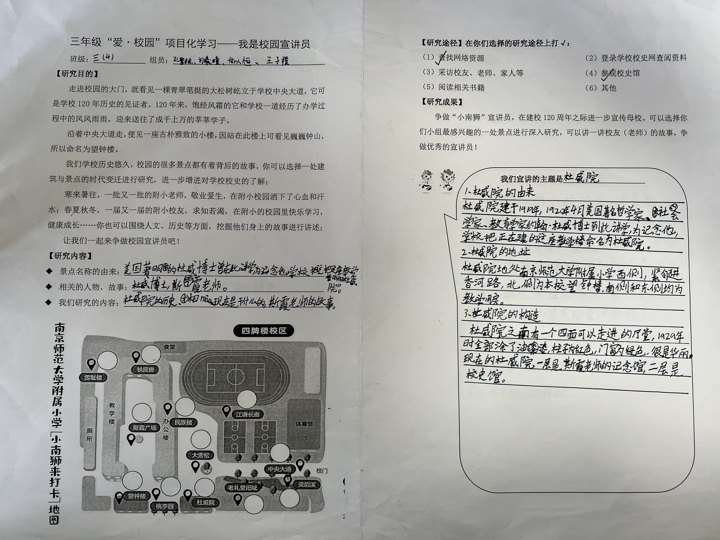 三年级“爱·校园”项目化学习——我是校园宣讲员
班级：三（4） 组员：
【研究目的】
走进校园的大门，就看见一棵青翠笔挺的大松树屹立于学校中央大道，它可
是学校120年历史的见证者。120年来，饱经风霜的它和学校一道经历了办学过
程中的风风雨雨，迎来送往了成千上万的莘莘学子。
沿着中央大道走，便见一座古朴雅致的小楼，因站在此楼上可看见巍巍钟山，
所以命名为望钟楼。
我们学校历史悠久，校园的很多景点都有着背后的故事，你可以选择一处建
筑与景点的时代变迁进行研究，进一步增进对学校校史的了解；
寒来暑往，一批又一批的附小老师，敬业爱生，在附小校园洒下了心血和汗
水；春夏秋冬，一届又一届的附小校友，求知若渴，在附小的校园里快乐学习，
健康成长……你也可以围绕人文、历史等方面，挖掘他们身上的故事进行讲述；
让我们一起来争做校园宣讲员吧！
【研究内容】
◆ 景点名称的由来：美国著名的杜威博士到此讲学为记念他学校
◆ 相关的人物、故事：杜威博士，斯霞老师。
◆ 我们研究的内容：杜威院的历史、斯霞老师的故事。
南京师范大学附属小学「小南狮来打卡」地图
四牌楼校区
食堂
雪耻楼
铁皮房
教学楼
厕所
斯霞广场
办公楼
民族楼
江谓长廊
体育馆
大雪松
中央大道
校门
望钟楼
杨李园
杜威院
老礼堂旧址
灵韵溪
【研究途径】在你们选择的研究途径上打√：
（1）查找网络资源 （2）登录学校校史网查阅资料
（3）采访校友、老师、家人等 （4）参观校史馆
（5）阅读相关书籍 （6）其他
【研究成果】
争做“小南狮”宣讲员，在建校120周年之际进一步宣传母校。可以选择你
们小组最感兴趣的一处景点进行深入研究，可以讲一讲校友（老师）的故事，争
做优秀的宣讲员！
我们宣讲的主题是杜威院
1、杜威院的由来
杜威院建于1918年，1920年4月美国著名哲学家、社会
学家、教育学家约翰·杜威博士到此讲学，为记念他，
学校把正在建的这座教学楼命名为杜威院。
2、杜威院的地址
杜威院地处南京师范大学附属小学西侧，紧邻进
香河路，北侧为本校望钟楼，南侧和东侧均为
教学房。
3、杜威院的构造
杜威院之南有一个四面可以走进的厅堂，1929年
时全部涂了油漆，柱为红色，门窗为绿色，很是华丽。
现在的杜威院一层是斯霞老师的记念馆，二层是
校史馆。